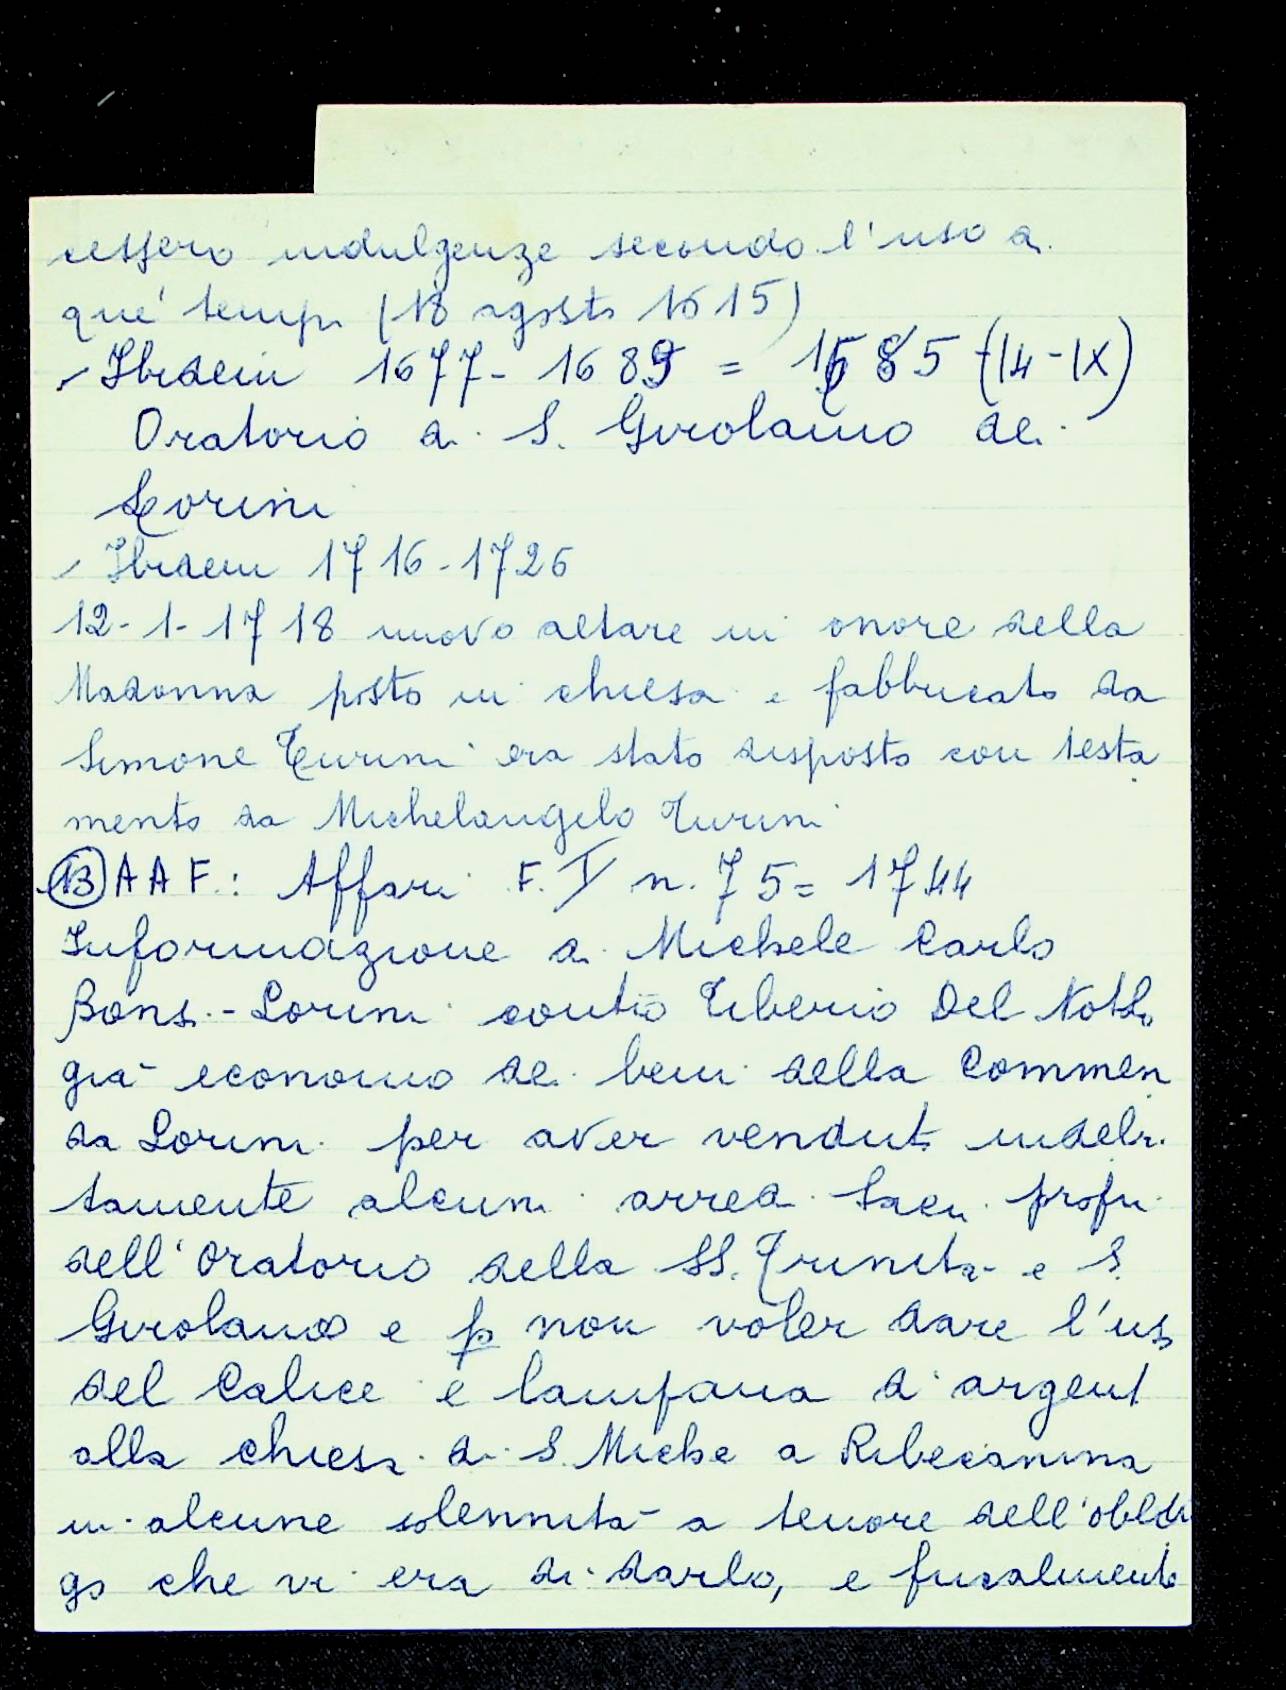 cessero indulgenze secondo l'uso di
que' tempi (18 agosto 1615)
Ibidem 1677- 1689 = 1685 (14-IX)
Oratorio di S. Girolamo dei
Lorini
Ibidem 1716-1726
12-1-1718 nuovo altare in onore della
Madonna posto in chiesa e fabbricato da
Simone Turini era stato disposto con testa
mento da Michelangelo Turini
(13) A A F.: Affari F. V n. 75= 1744
Informazione di Michele Carlo
Bons.-Lorini contro Tiberio Del Notto
già economo dei beni della Commen
da Lorini per aver venduti indebi
tamente alcuni arredi Sacri profri
dell'Oratorio della SS. Trinità e S.
Girolamo e p non voler dare l'uso
del Calice e lampana d'argento
alla chiesa di S. Michele a Ribecanina
in alcune solennità a tenore dell'obbli
go che vi era di darlo, e finalmente